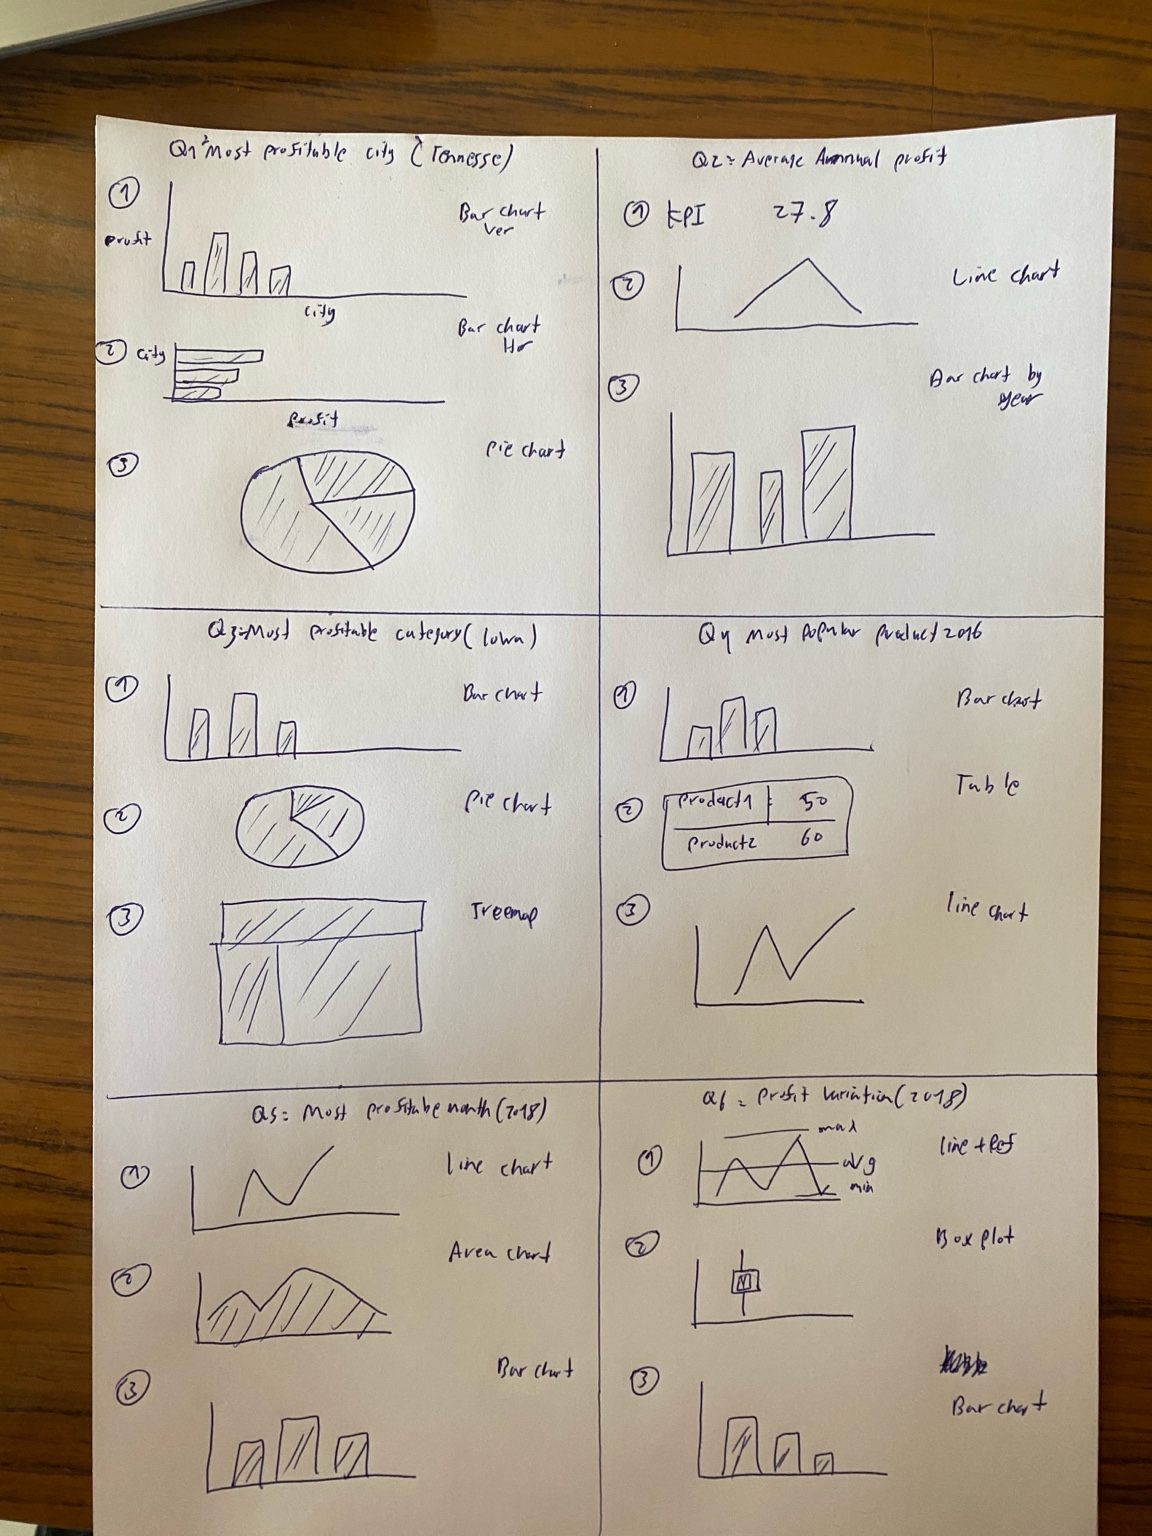 Q1: Most profitable city (Tennesse)
1
Profit
Bar chart
ver
city
2
City
Bar chart
Hor
Profit
3
Pie chart
Q2: Average Annual profit
1 KPI 27.8
2
Line chart
3
Bar chart by
year
Q3: Most profitable category (Iowa)
1
Bar chart
2
Pie chart
3
Treemap
Q4 Most popular product 2016
1
Bar chart
2
Product1 : 50
Product2 60
Table
3
line chart
Q5: Most profitabe month (2018)
1
line chart
2
Area chart
3
Bar chart
Q6: Profit variation (2018)
1
max
avg
min
line + Ref
2
Box plot
3
Bar chart